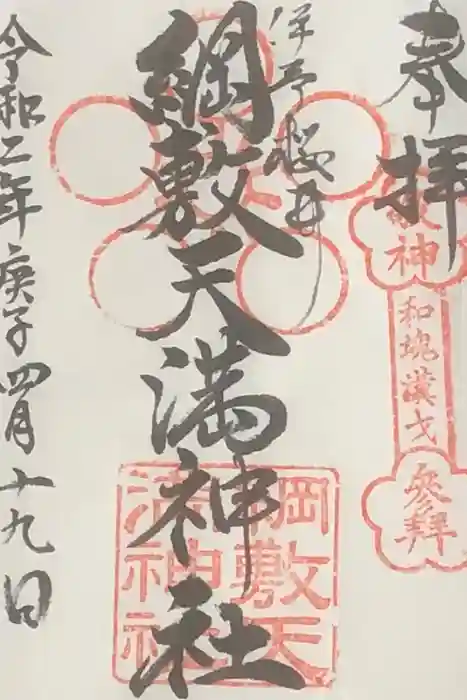 奉拝
敬神
和魂漢才
参拝
伊予桜井
綱敷天満神社
綱敷天
満神社
令和二年庚子四月十九日